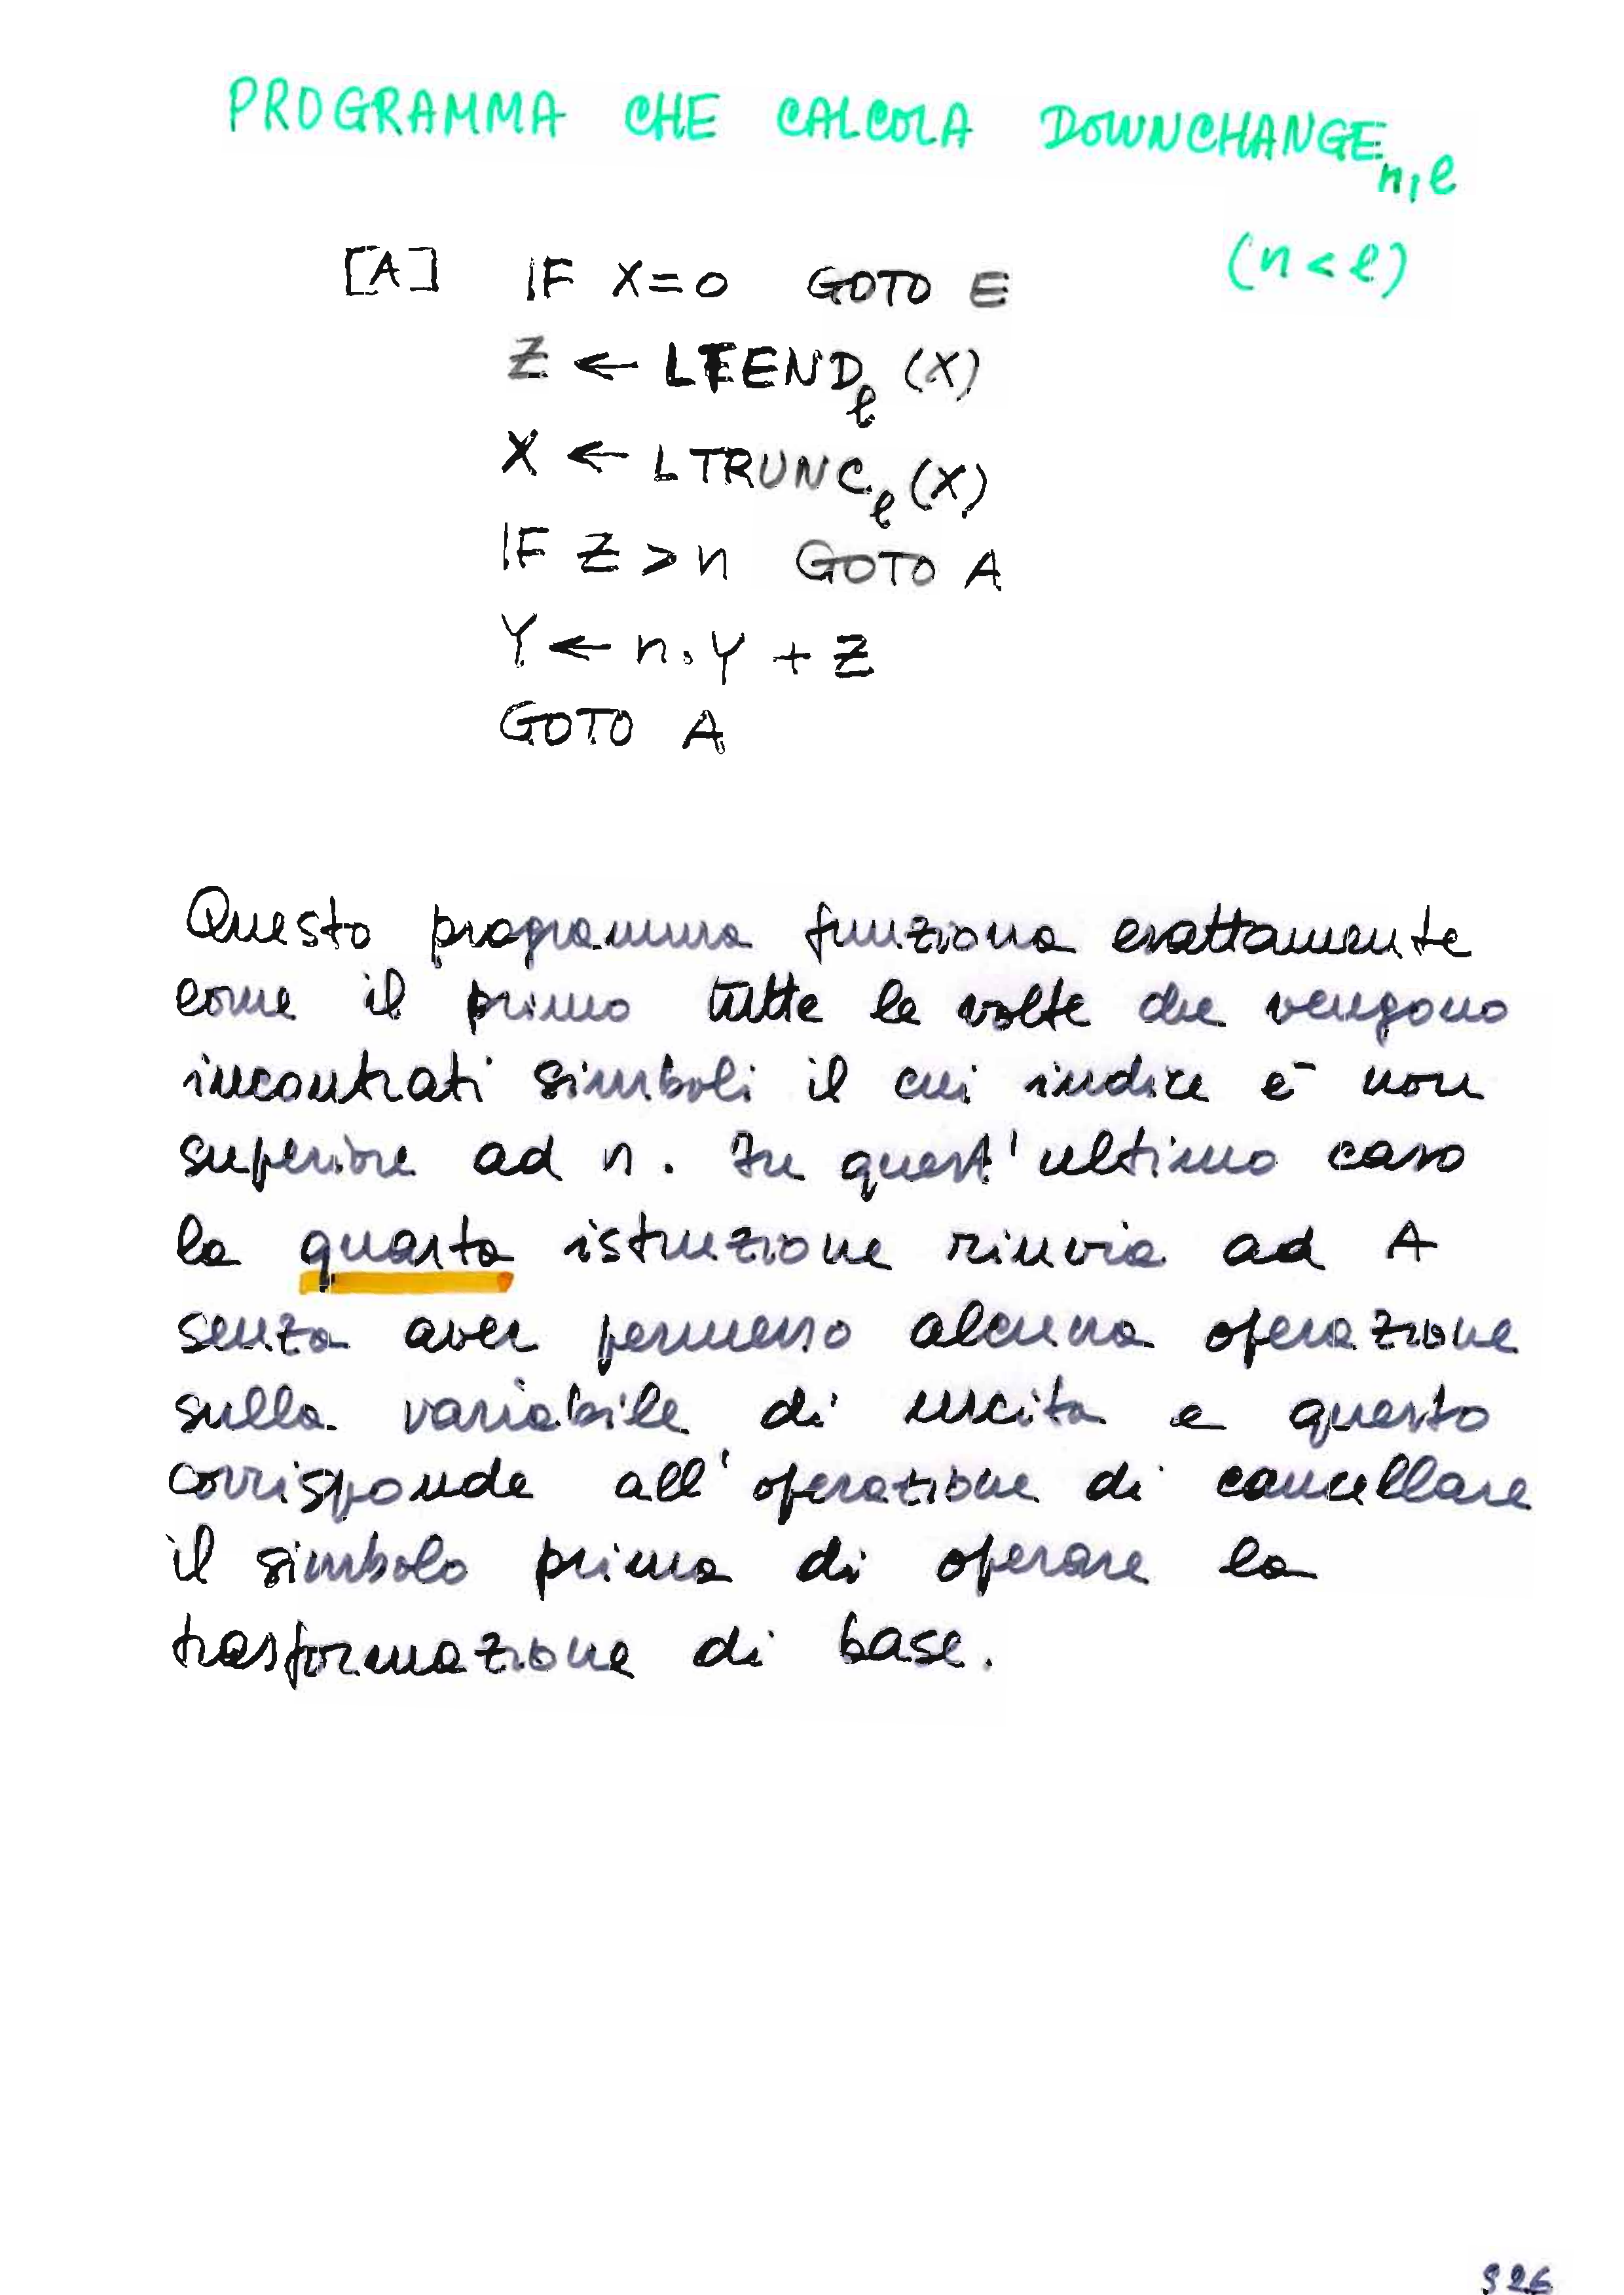 PROGRAMMA CHE CALCOLA DOWNCHANGE n,l
(n < l)
[A] IF X=0 GOTO E
Z ← LTEND l (X)
X ← LTRUNC l (X)
IF Z > n GOTO A
Y ← n.Y + Z
GOTO A
Questo programma funziona esattamente
come il primo tutte le volte che vengono
incontrati simboli il cui indice è non
superiore ad n. In quest'ultimo caso
la quarta istruzione rinvia ad A
senza aver permesso alcuna operazione
sulla variabile di uscita e questo
corrisponde all'operazione di cancellare
il simbolo prima di operare la
trasformazione di base.